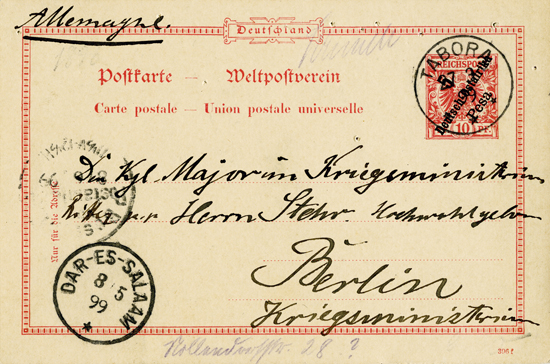 Allemagne.
Deutschland
Postkarte — Weltpostverein
Carte postale — Union postale universelle
TABORA
REICHSPOST
Deutsch-Ostafrika
5 Pesa
10 PF.
Nur für die Adresse
Kgl. Major im Kriegsministerium
Ritter p.p. Herrn Stehr Hochwohlgeboren
Berlin
Kriegsministerium
DAR-ES-SALAAM
8 5
99
28 ?